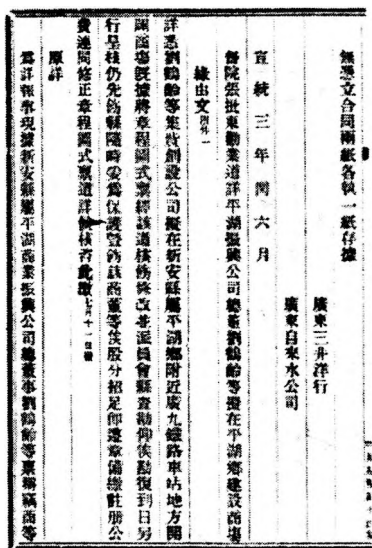 無憑立合同兩紙各執一紙存據
廣東三井洋行
廣東自來水公司
宣統三年閏六月
督院張批東勸業道詳平湖振興公司總董劉鶴齡等擬在平湖鄉建設商場
緣由文 附件一
詳悉劉鶴齡等集貲創設公司擬在新安縣屬平湖鄉附近廣九鐵路車站地方開
闢商場既據將章程圖式稟經該道核飭修改并派員會縣查勘仰俟勘復到日另
行呈核仍先飭縣隨時妥爲保護暨飭該商董等俟股分招足即遵章備繳註册公
費連同修正章程圖式稟道詳候核咨此繳
原詳
爲詳報事現據新安縣屬平湖商業振興公司總董事劉鶴齡等稟稱竊商等